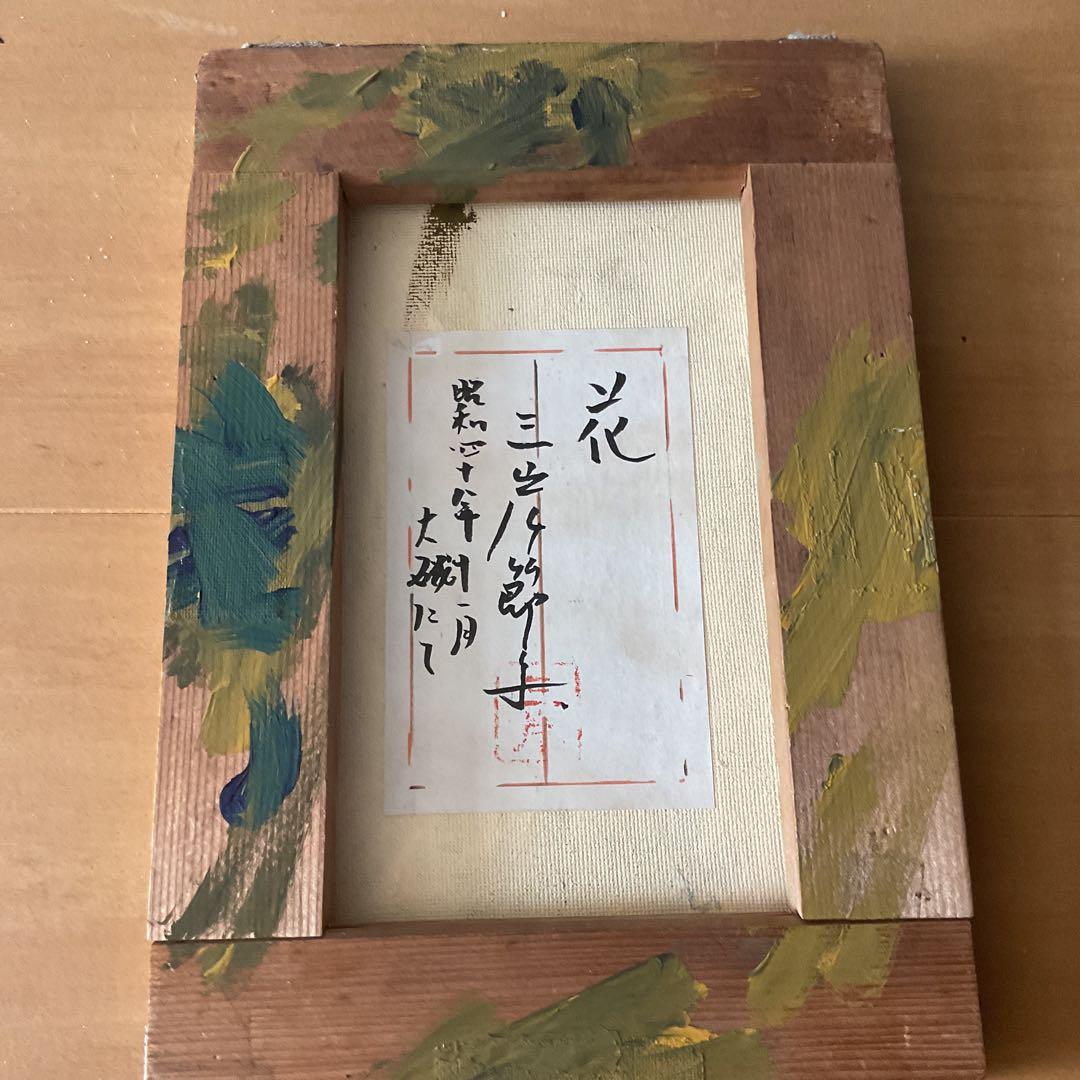 花
三岸節子
昭和四十八年十一月
大磯にて